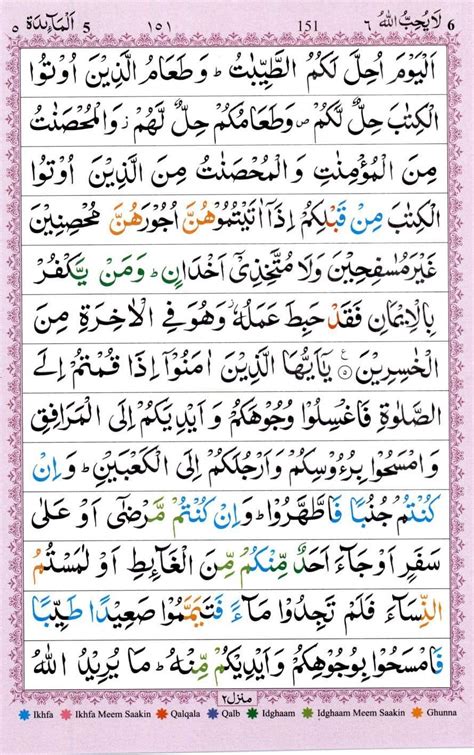 لَا يُحِبُّ اللهُ ٦ 6 151 ١٥١ 5 اَلْمَآئِدَة ٥
اَلْيَوْمَ اُحِلَّ لَكُمُ الطَّيِّبٰتُ ؕ وَطَعَامُ الَّذِيْنَ اُوْتُوا
الْكِتٰبَ حِلٌّ لَّكُمْ ۪ وَطَعَامُكُمْ حِلٌّ لَّهُمْ ؗ وَالْمُحْصَنٰتُ
مِنَ الْمُؤْمِنٰتِ وَالْمُحْصَنٰتُ مِنَ الَّذِيْنَ اُوْتُوا
الْكِتٰبَ مِنْ قَبْلِكُمْ اِذَاۤ اٰتَيْتُمُوْهُنَّ اُجُوْرَهُنَّ مُحْصِنِيْنَ
غَيْرَ مُسٰفِحِيْنَ وَلَا مُتَّخِذِيْۤ اَخْدَانٍ ؕ وَمَنْ يَّكْفُرْ
بِالْاِيْمَانِ فَقَدْ حَبِطَ عَمَلُهٗ ؗ وَهُوَ فِي الْاٰخِرَةِ مِنَ
الْخٰسِرِيْنَ ۠ ﴿٥﴾ يٰۤاَيُّهَا الَّذِيْنَ اٰمَنُوْۤا اِذَا قُمْتُمْ اِلَى
الصَّلٰوةِ فَاغْسِلُوْا وُجُوْهَكُمْ وَاَيْدِيَكُمْ اِلَى الْمَرَافِقِ
وَامْسَحُوْا بِرُءُوْسِكُمْ وَاَرْجُلَكُمْ اِلَى الْكَعْبَيْنِ ؕ وَاِنْ
كُنْتُمْ جُنُبًا فَاطَّهَّرُوْا ؕ وَاِنْ كُنْتُمْ مَّرْضٰۤى اَوْ عَلٰى
سَفَرٍ اَوْ جَآءَ اَحَدٌ مِّنْكُمْ مِّنَ الْغَآئِطِ اَوْ لٰمَسْتُمُ
النِّسَآءَ فَلَمْ تَجِدُوْا مَآءً فَتَيَمَّمُوْا صَعِيْدًا طَيِّبًا
فَامْسَحُوْا بِوُجُوْهِكُمْ وَاَيْدِيْكُمْ مِّنْهُ ؕ مَا يُرِيْدُ اللهُ
منزل ٢
Ikhfa Ikhfa Meem Saakin Qalqala Qalb Idghaam Idghaam Meem Saakin Ghunna